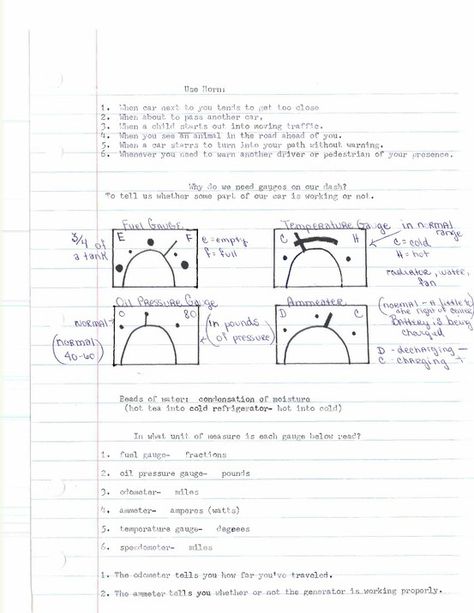 Use Horn:
1. When car next to you tends to get too close
2. When about to pass another car.
3. When a child starts out into moving traffic.
4. When you see an animal in the road ahead of you.
5. When a car starrs to turn into your path without warning.
6. Whenever you need to warn another driver or pedestrian of your presence.
Why do we need gauges on our dash?
To tell us whether some part of our car is working or not.
Fuel Gauge
Temperature Gauge in normal range
3/4 of a tank
E F
e = empty
f = full
C H
C = cold
H = hot
radiator, water, fan
Oil Pressure Gauge
Ammeater
normal
(normal 40-60)
0 80
(in pounds of pressure)
D C
(normal - a little to the right of center
Battery is being charged
D - decharging -
C - charging +
Beads of water: condensation of moisture
(hot tea into cold refrigerator- hot into cold)
In what unit of measure is each gauge below read?
1. fuel gauge- fractions
2. oil pressure gauge- pounds
3. odometer- miles
4. ammeter- amperes (watts)
5. temperature gauge- degrees
6. speedometer- miles
1. The odometer tells you how far you've traveled.
2. The ammeter tells you whether or not the generator is working properly.